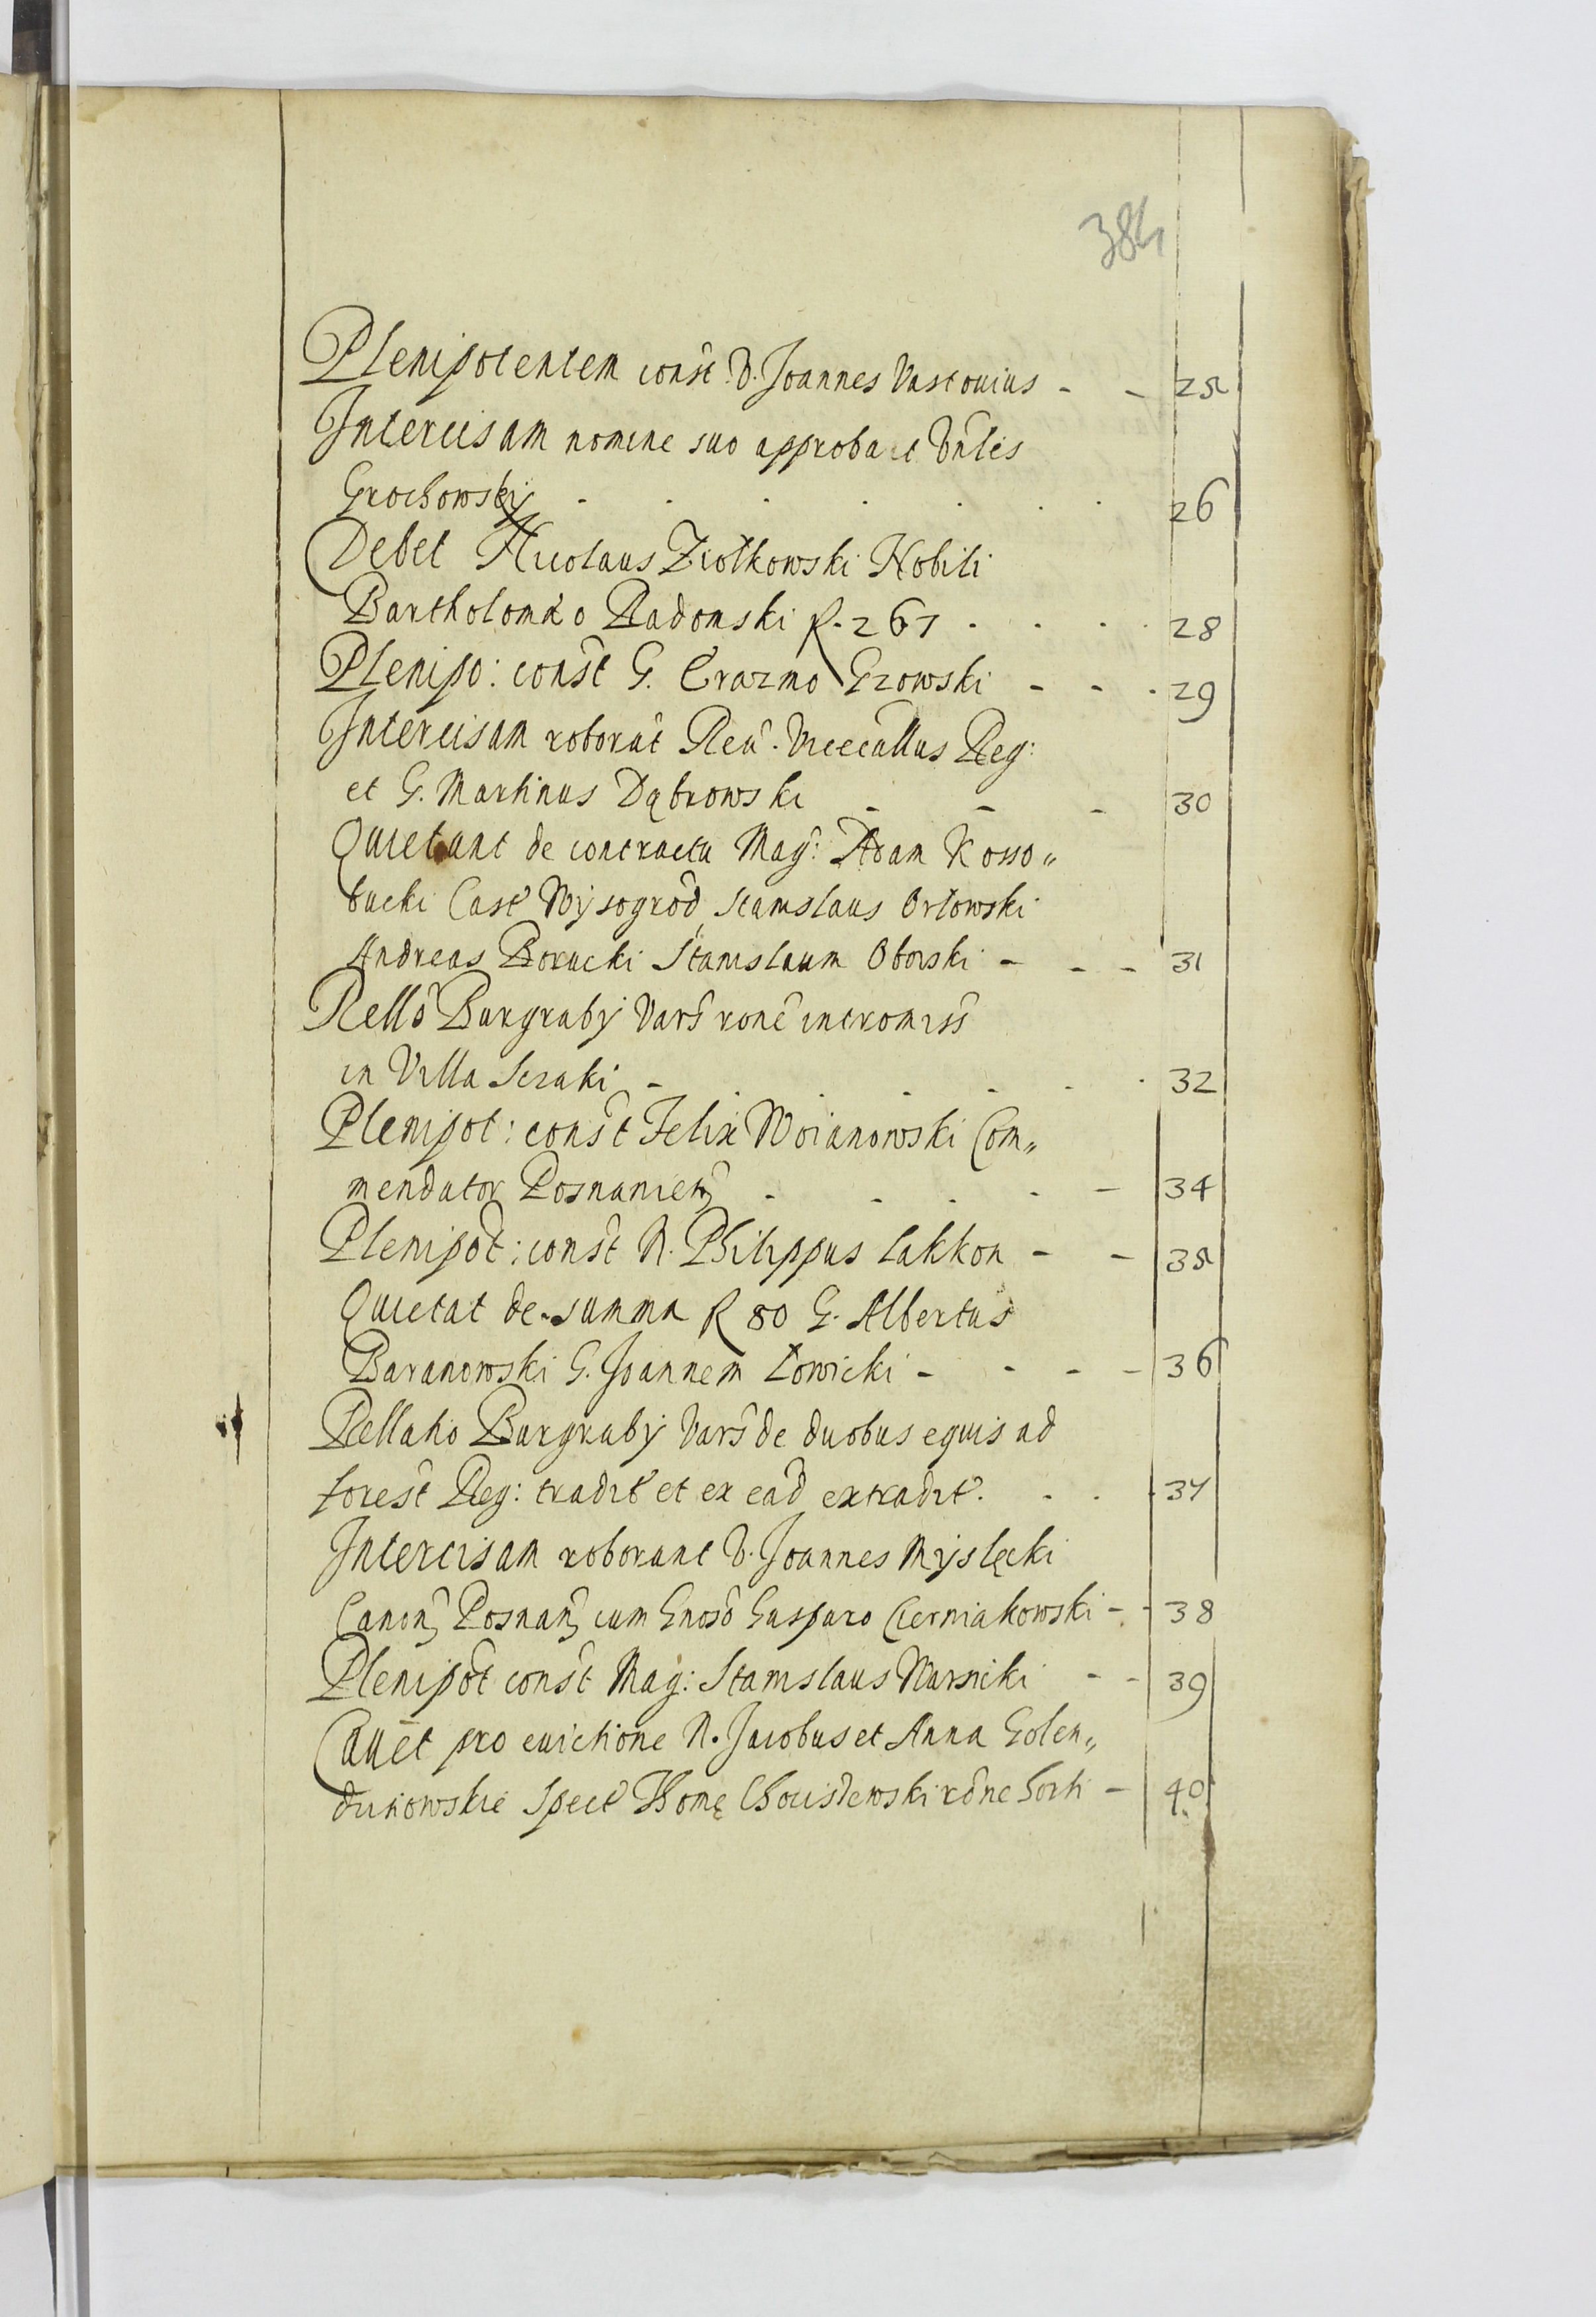 384
Plenipotentem const V. Joannes Vastouius - - 25
Intercisam nomine suo approbat
Grochowskij 26
Debet Nicolaus Ziołkowski Nobili
Bartholomæo Radomski R. 267 28
Plenipo: const G. Erazmo Gzowski - - 29
Intercisam roborat Reu. Vicecallus Reg:
et G. Martinus Dąbrowski - - - 30
Quietant de contractu Mag: Adam Kosso„
bucki Cast Wysogrod, Stanislaus Orłowski
Andreas Borucki Stanislaum Oborski - - - 31
Rello Burgrabij Vars rone intromiss
in Villa Seraki - 32
Plenipot: const Felix Woianowski Com„
mendator Posnanien - 34
Plenipot: const N. Philippus Lakkon - - 35
Quietat de summa R 80 G. Albertus
Baranowski G. Joannem Łowicki - - - - 36
Rellatio Burgrabij Vars de duobus equis ad
forest Reg: tradit et ex ead extradit. 37
Intercisam roborant V. Joannes Myslęcki
Canon Posnan cum Gnoso Gasparo Czerniakowski - - 38
Plenipot const Mag: Stanislaus Warsicki - - 39
Cauet pro euictione N. Jacobus et Anna Golen„
dunowskie Spect Thomę rone horti - 40